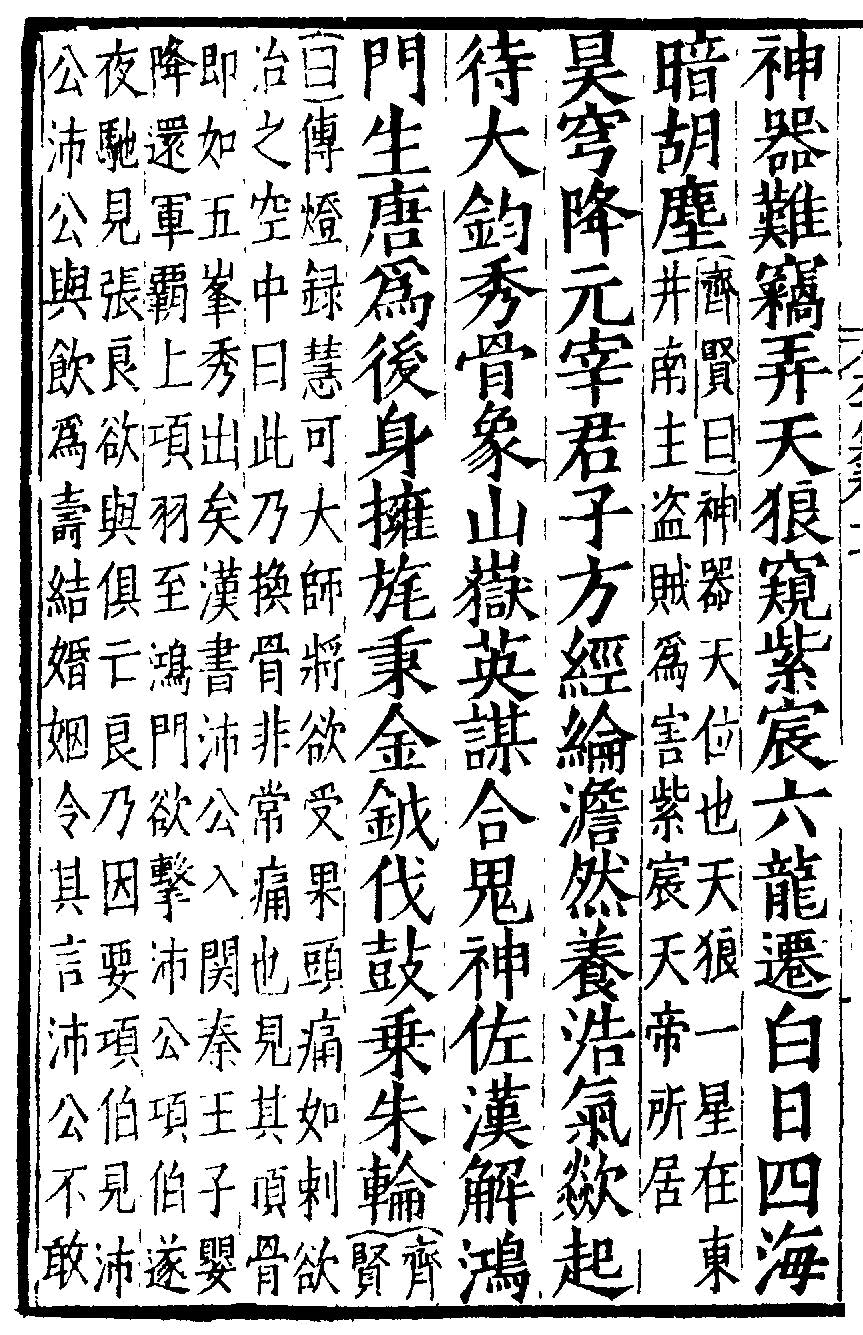 神器難竊弄天狼窺紫宸六龍遷白日四海
暗胡塵
齊賢曰神器天位也天狼一星在東
井南主盗賊爲害紫宸天帝所居
昊穹降元宰君子方經綸澹然養浩氣歘起
待大鈞秀骨象山嶽英謀合鬼神佐漢解鴻
門生唐爲後身擁旄秉金鉞伐鼓乗朱輪
齊
賢
曰傳燈録慧可大師將欲受果頭痛如刺欲
冶之空中曰此乃換骨非常痛也見其頂骨
即如五峯秀出矣漢書沛公入関秦王子嬰
降還軍覇上項羽至鴻門欲擊沛公項伯遂
夜馳見張良欲與俱亡良乃因要項伯見沛
公沛公與飲爲壽結婚姻令其言沛公不敢